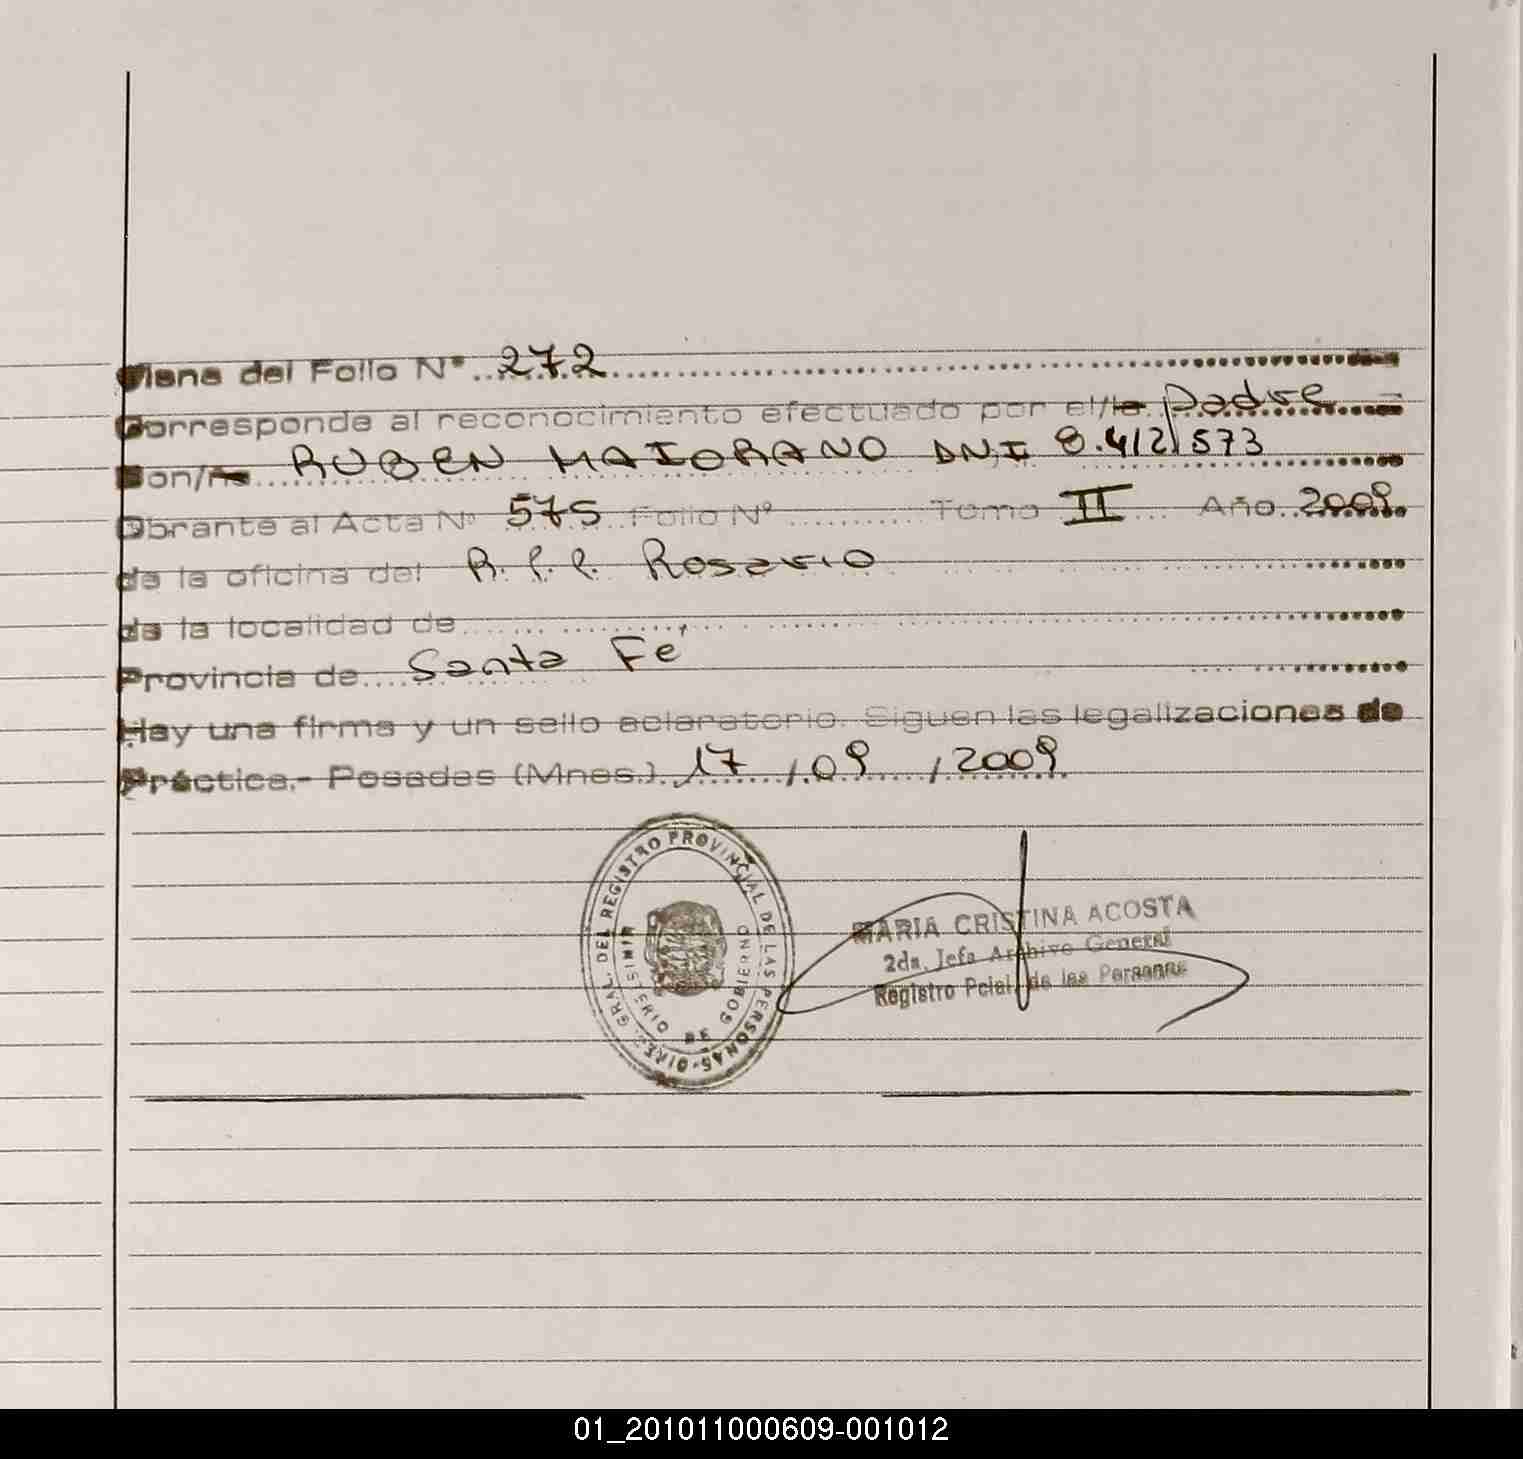 Viene del Folio N° 272
Corresponde al reconocimiento efectuado por el/la Padre
Don/ña RUBEN MAIORANO DNI 8.412.573
Obrante al Acta N° 575 Folio N° Tomo II Año 2009
de la oficina del R.P.P. Rosario
de la localidad de
Provincia de Santa Fé
Hay una firma y un sello aclaratorio. Siguen las legalizaciones de
Práctica.- Posadas (Mnes.) 17/09/2009
DIREC. GRAL. DEL REGISTRO PROVINCIAL DE LAS PERSONAS
MINISTERIO DE GOBIERNO
MARIA CRISTINA ACOSTA
2da. Jefa Archivo General
Registro Pcial. de las Personas
01_201011000609-001012